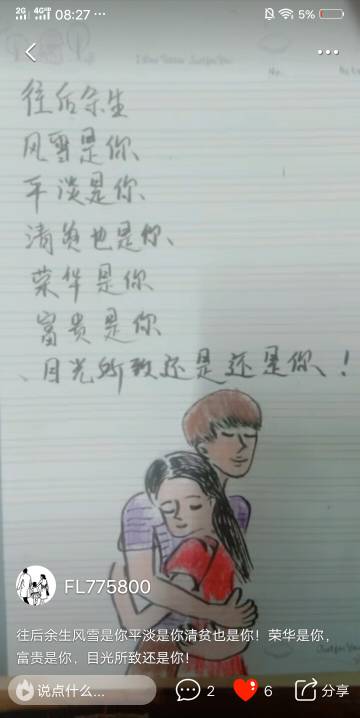 2G 4G 08:27 ... 5%
往后余生
风雪是你、
平淡是你、
清贫也是你、
荣华是你
富贵是你
、目光所致还是还是你、！
FL775800
往后余生风雪是你平淡是你清贫也是你！荣华是你，
富贵是你，目光所致还是你！
说点什么... 2 6 分享